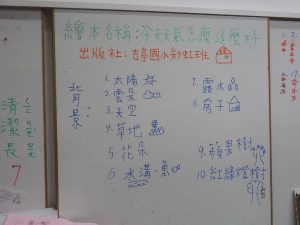 繪本名稱:今天天氣怎麼這麼好
出版社:古亭國小彩虹班
背景:
1.太陽
2.雲朵
3.天空
4.草地
5.花朵
6.水溝.魚
7.露水
8.房子
9.蘋果樹
10.紅綠燈樹
清潔長
7